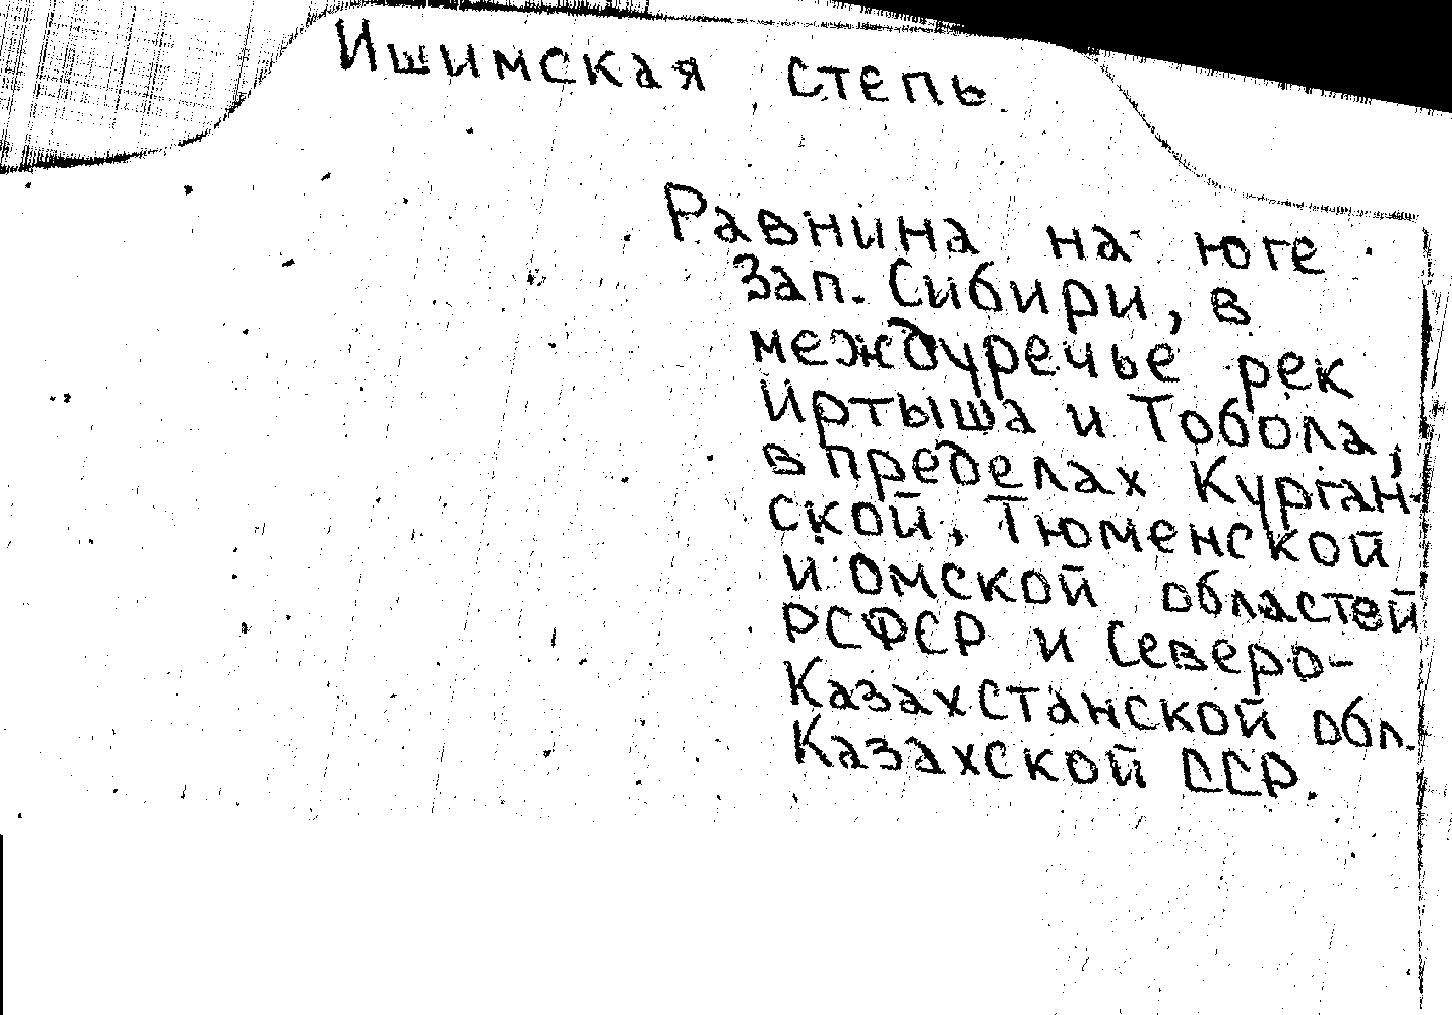 Ишимская степь
Равнина на юге
Зап. Сибири, в
междуречье рек
Иртыша и Тобола,
в пределах Курган-
ской, Тюменской
и Омской областей
РСФСР и Северо-
Казахстанской обл.
Казахской ССР.